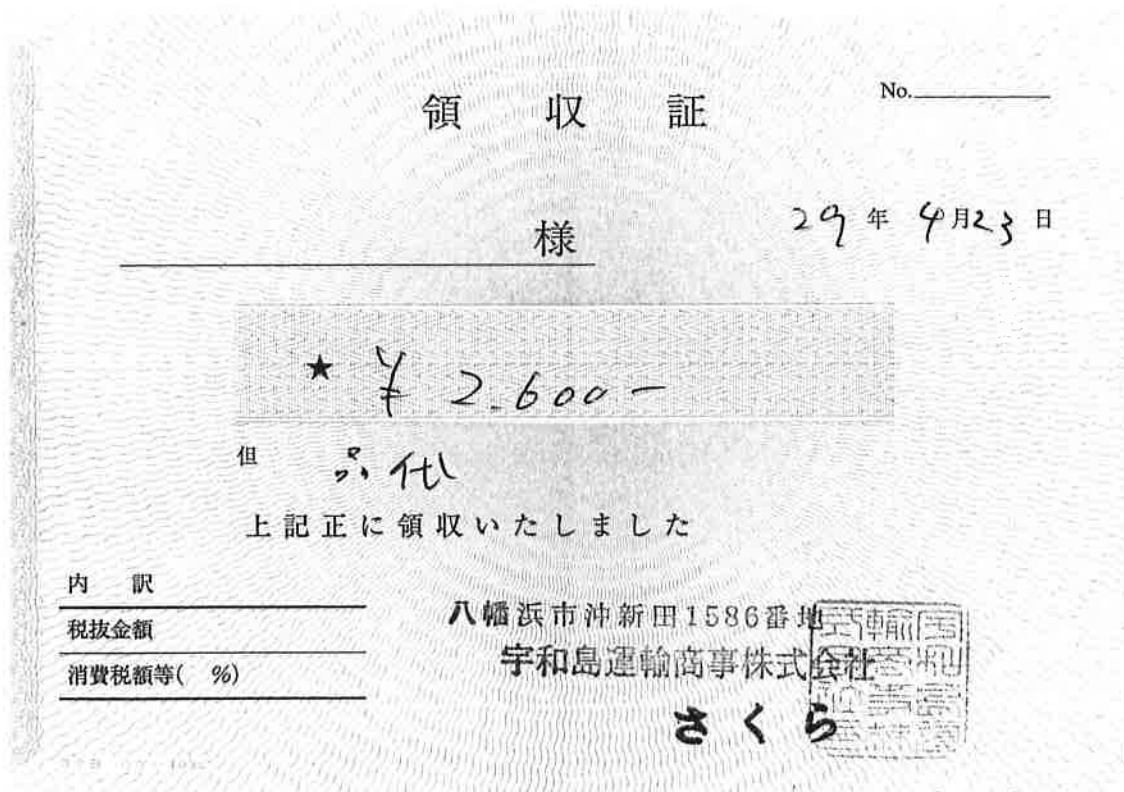 No.
領収証
29年4月23日
様
★ ¥2.600-
但 品代
上記正に領収いたしました
内訳
税抜金額
消費税額等( %)
八幡浜市沖新田1586番地
宇和島運輸商事株式会社
さくら